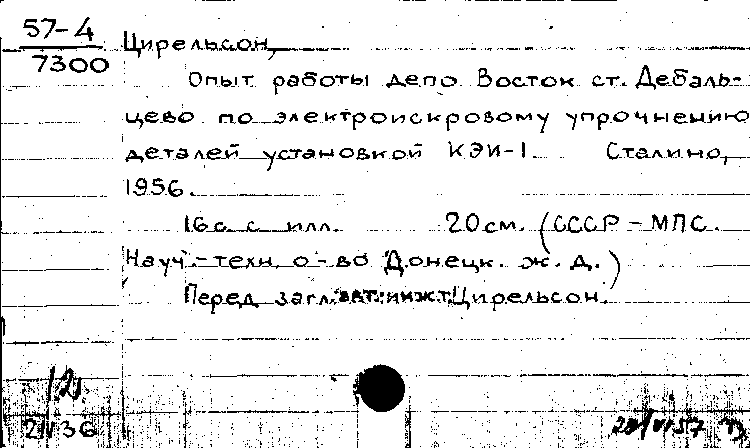 57-4
7300
Цирельсон,
Опыт работы депо Восток ст. Дебаль-
цево по электроискровому упрочнению
деталей установкой КЭИ-1. Сталино,
1956.
16 с. с илл. 20 см. (СССР – МПС.
Науч.-техн. о-во Донецк. ж. д.)
Перед загл. авт.: инж. Цирельсон.
36